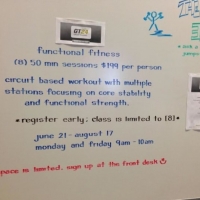 functional fitness
(8) 50 min sessions $199 per person
circuit based workout with multiple
stations focusing on core stability
and functional strength.
*register early; class is limited to (8)*
june 21 - august 17
monday and friday 9am - 10am
space is limited. sign up at the front desk